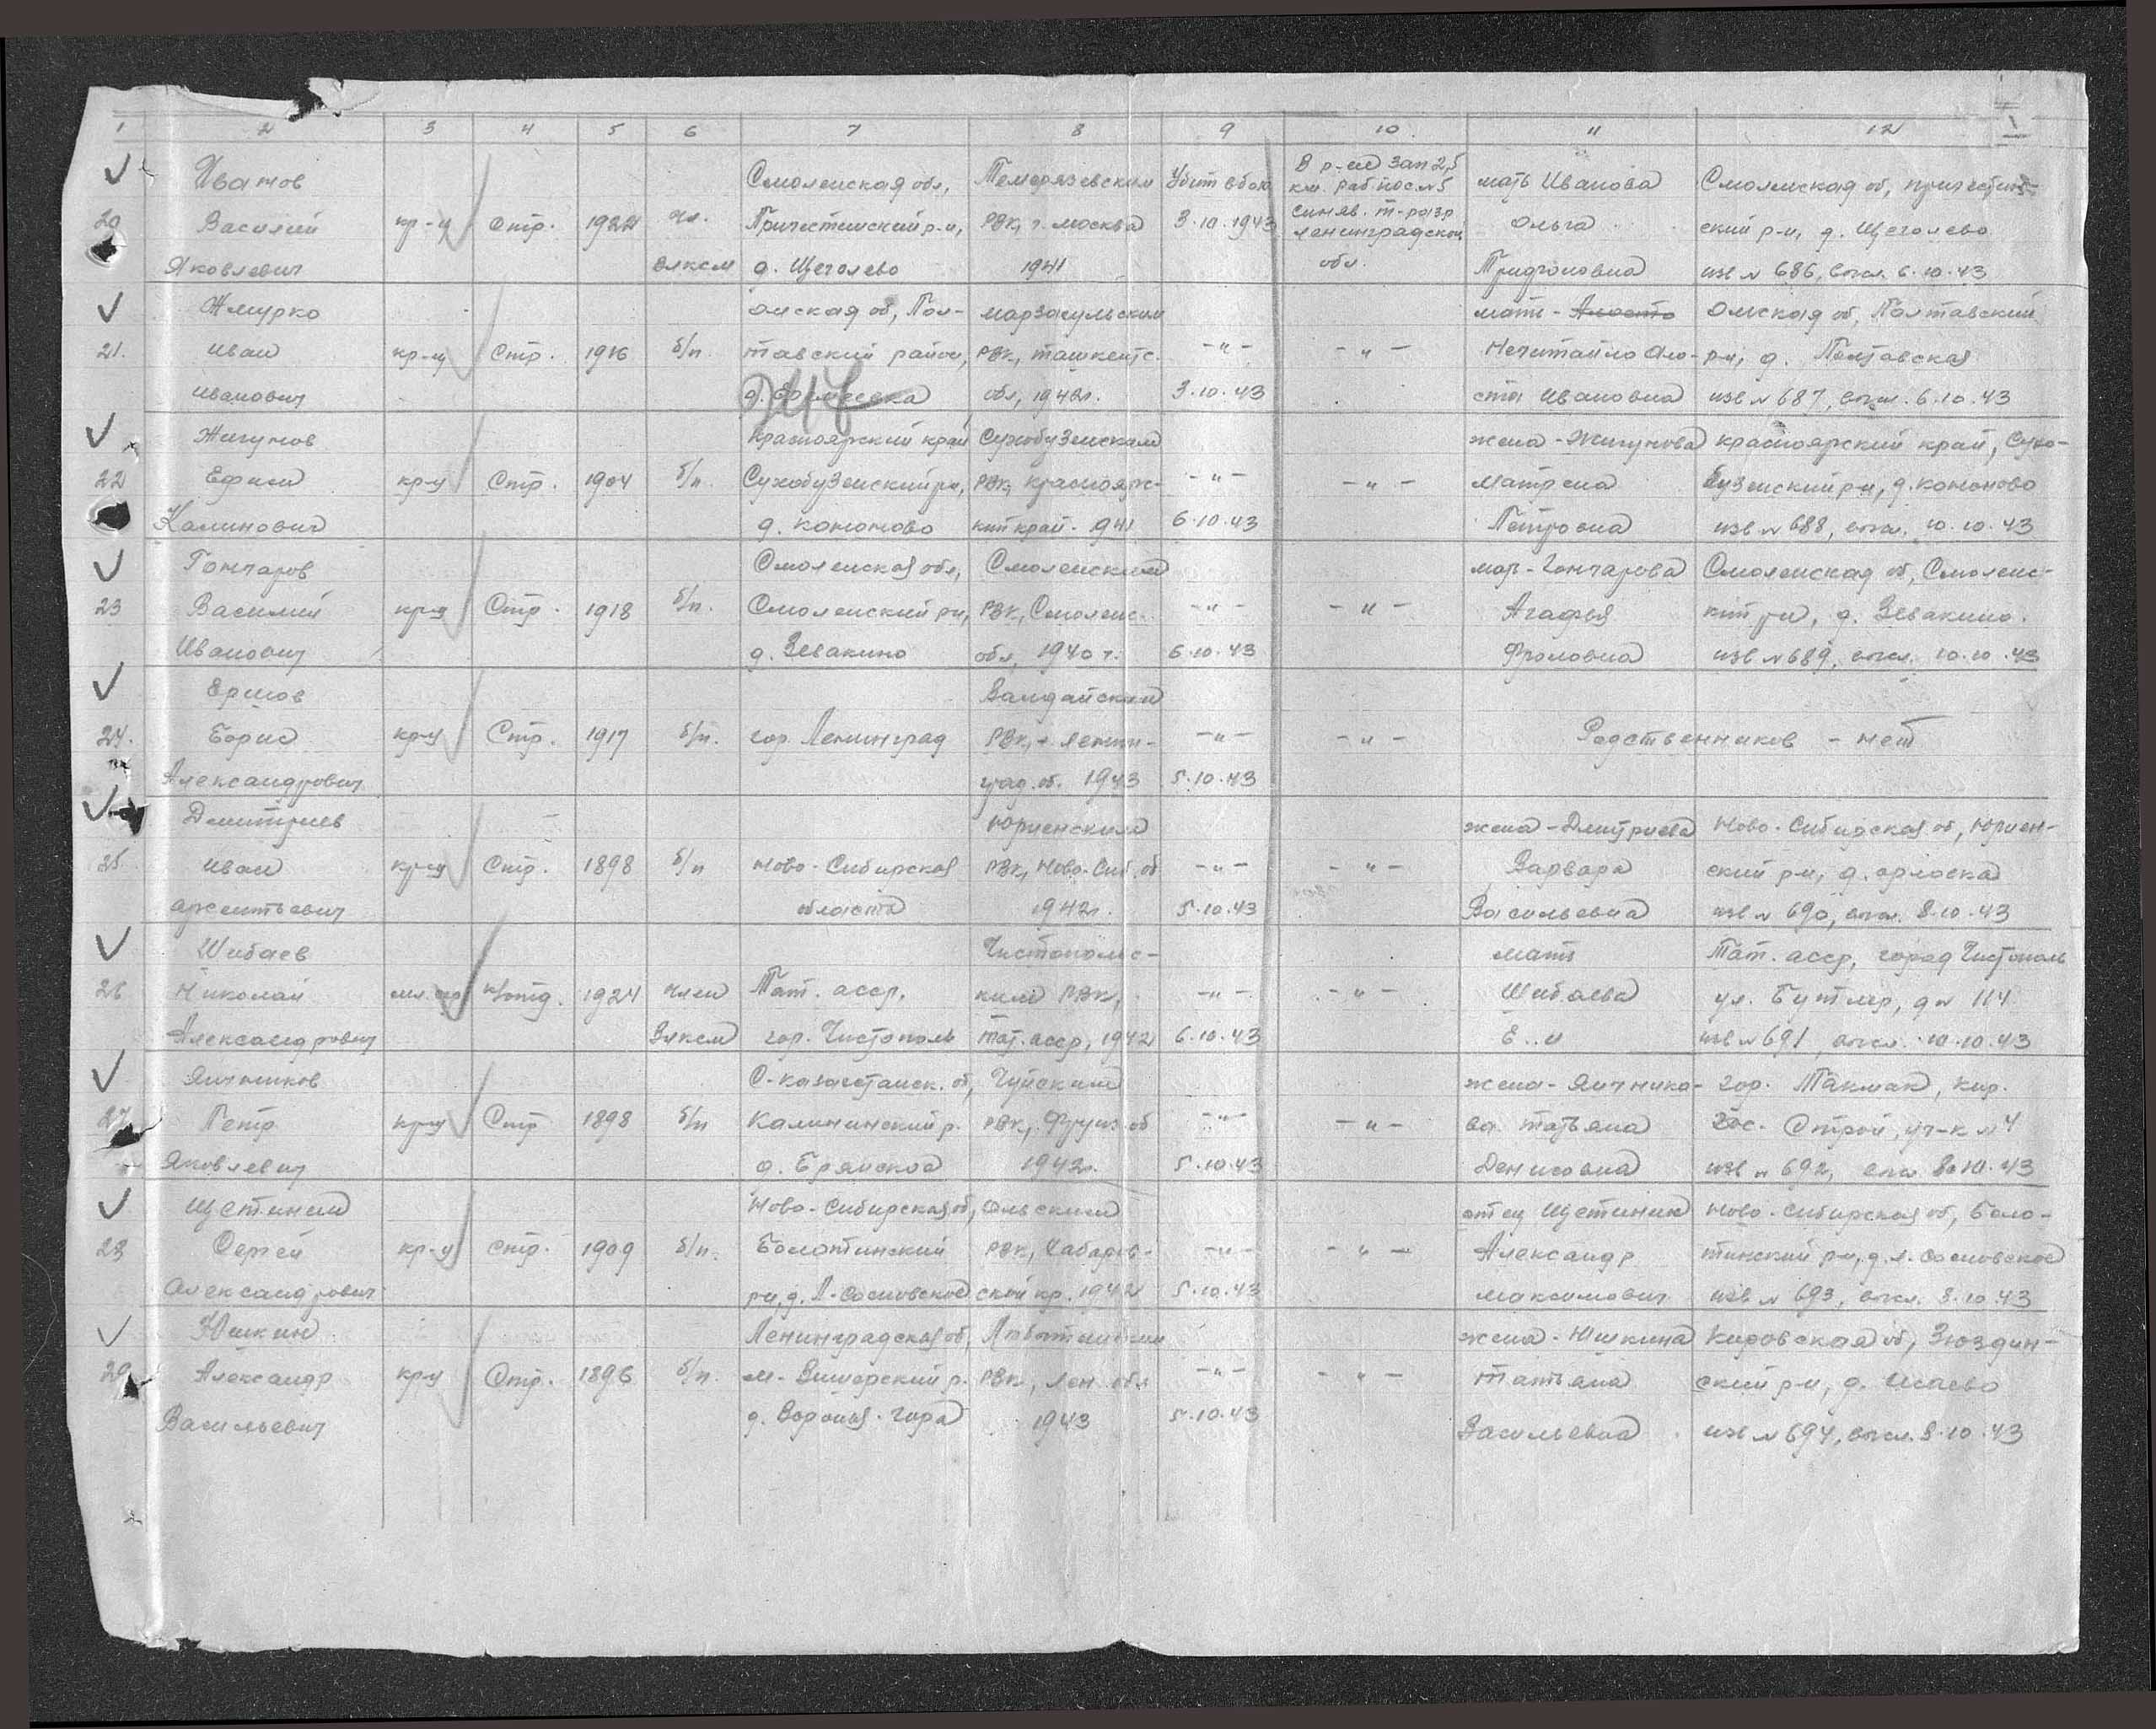 1 2 3 4 5 6 7 8 9 10 11 12
Иванов Смоленская обл, Темерязевским Убит в бою В р-не зап 2,5 км. раб. пос. №5 мать Иванова Смоленская об, Пречистин-
20 Василий кр-ц Стр. 1922 чл. Пречистинский р-н, РВК, г. Москва 3.10.1943 Синяв. т-разр. Ленинградской Ольга ский р-н, д. Щеголево
Яковлевич ВЛКСМ д. Щеголево 1941 обл. Трифоновна изв № 686, выс. 6.10.43
Жмурко Омская об, Пол- мать - Омская об, Полтавский
21. Иван кр-ц Стр. 1916 б/п. тавский район, РВК, Ташкентс. -"- -"- Нечитайло Ана- р-н, д. Полтавская
Иванович д. обл, 1942г. 3.10.43 ста Ивановна изв № 687, выс. 6.10.43
Жигунов Красноярский край Сухобузимским жена - Жигунова Красноярский край, Сухо-
22 Ефим кр-ц Стр. 1904 б/п. Сухобузимский р-н, РВК, Краснояр- -"- -"- Матрена бузимский р-н, д. Кононово
Калинович д. Кононово кий край. 941 6.10.43 Петровна изв № 688, выс. 10.10.43
Гончаров Смоленская обл, Смоленским мать - Гончарова Смоленская об, Смоленс-
23 Василий кр-ц Стр. 1918 б/п. Смоленский р-н, РВК, Смоленс. -"- -"- Агафья кий р-н, д. Зевакино.
Иванович д. Зевакино обл, 1940 г. 6.10.43 Фроловна изв № 689, выс. 10.10.43
Ершов Валдайским
24. Борис кр-ц Стр. 1917 б/п. гор. Ленинград РВК, Ленин- -"- -"- Родственников - нет
Александрович град. об. 1943 5.10.43
Дмитриев Юргенским жена - Дмитриева Ново-Сибирская об, Юрген-
25. Иван кр-ц Стр. 1898 б/п Ново-Сибирская РВК, Ново-Сиб. об -"- -"- Варвара ский р-н, д.
Арсентьевич область 1942г. 5.10.43 Васильевна изв № 690, выс. 8.10.43
Шибаев Чистопольс- мать Тат. асср, город Чистополь
26 Николай мл. сер К/отд. 1924 член Тат. асср, ким РВК, -"- -"- Шибаева ул. Бутлер, д № 114
Александрович ВЛКСМ гор. Чистополь Тат. асср, 1942 6.10.43 Е. И изв № 691, выс. 10.10.43
Яичников С-Казахстанск. об, Чуйским жена - Яичнико- гор. Такмак, Кир.
27. Петр кр-ц Стр 1898 б/п Калининский р. РВК, Фрунз. об -"- -"- ва Татьяна Строй, уч-к № 4
Яковлевич д. Брянское 1942г. 5.10.43 Денисовна изв № 692, выс 8.10.43
Щетинин Ново-Сибирская об, Ольским отец Щетинин Ново-Сибирская об, Боло-
28 Сергей кр-ц стр. 1909 б/п. Болотинский РВК, Хабаров- -"- -"- Александр тинский р-н, д. Л. Сосновское
Александрович р-н, д. Л-Сосновское ский кр. 1942 5.10.43 Максимович изв № 693, выс. 8.10.43
Юшкин Ленинградская об, жена - Юшкина Кировская об, Зюздин-
29 Александр кр-ц Стр. 1896 б/п. М-Вишерский р. РВК, Лен. обл -"- -"- Татьяна ский р-н, д. Исаево
Васильевич д. Воронья-гора 1943 5.10.43 Васильевна изв № 694, выс. 8.10.43